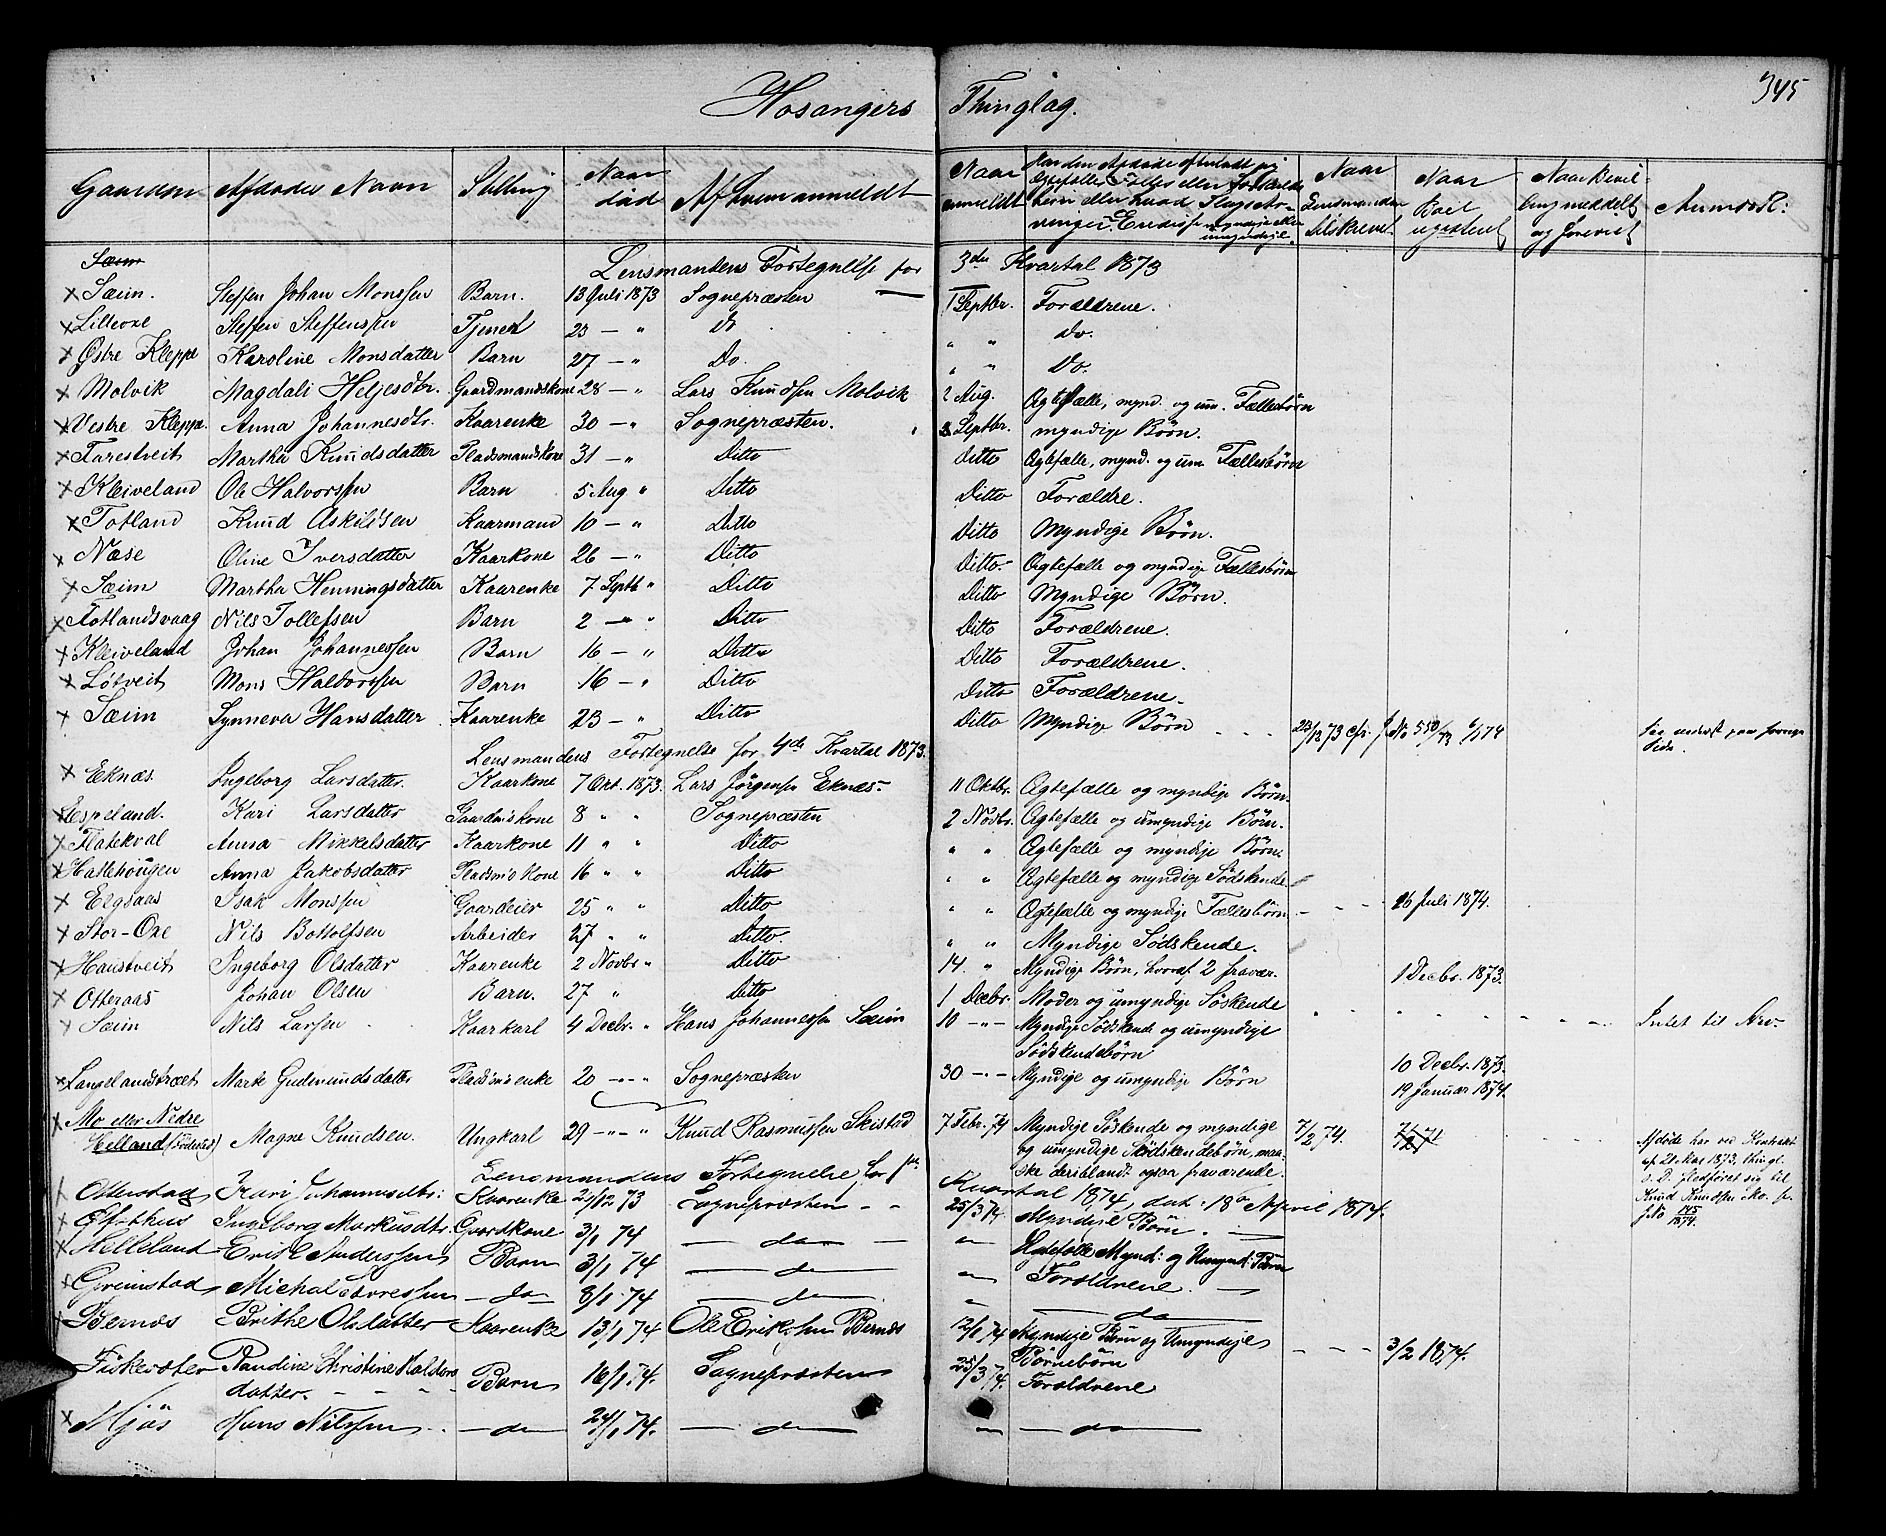 345
Hosangers Thinglag.
Gaardens Afdødes Navn Stilling Naar død Af hvem anmeldt Naar anmeldt Har den Afdøde efterladt sig Ægtefælle, Fælles eller Særskilte Børn eller hvad Slags Arvinger. Ere disse myndige eller umyndige. Naar Lensmanden tilskrevet Naar Boet registeret Naar Bevilling meddelt og forevist Anmærkl:
Sæim
Lensmandens Fortegnelse for 3die Kvartal 1873
x Sæim. Steffen Johan Monssen Barn. 13 Juli 1873 Sognepræsten 1 Septbr. Forældrene.
x Lilleoxe Steffen Steffenssen Tjenest 23 — " Do " " Do.
x Østre Kleppe Karoline Monsdatter Barn 27 — " Do. " " Do.
x Molvik Magdali Heljesdtr. Gaardmandskone 28 — " Lars Knudsen Molvik 2 Aug. Ægtefælle, mynd. og um. Fællesbørn
x Vestre Kleppe. Anna Johannesdtr. Kaarenke 30 — " Sognepræsten. Septbr. myndige Børn.
x Farestveit Martha Knudsdatter Pladsmandskone 31 — " Ditto Ditto Ægtefælle, mynd. og um. Fællesbørn
x Kleiveland Ole Halvorssen Barn 5 Aug " Ditto Ditto Forældre.
x Totland Knud Askildsen Kaarmand 10 — " Ditto Ditto Myndige Børn.
x Næse Oline Iversdatter Kaarkone 26 — " Ditto Ditto Ægtefælle og myndige Fællesbørn
x Sæim Martha Henningsdatter Kaarenke 7 Septb " Ditto Ditto Myndige Børn.
x Totlandsvaag Nils Tollefsen Barn 2 — " Ditto Ditto Forældrene.
x Kleiveland Johan Johannessen Barn 16 — " Ditto Ditto Forældrene.
x Løtveit Mons Halvorssen Barn 16 — " Ditto Ditto Forældrene.
x Sæim Synneva Hansdatter Kaarenke 23 — " Ditto Ditto Myndige Børn 23/12 73 cfr. J No 550/73 6/1 74 Saa nederst paa forrige Side.
Lensmandens Fortegnelse for 4de Kvartal 1873.
x Eknæs. Ingeborg Larsdatter. Kaarkone 7 Okt. 1873. Lars Jørgensen Eknæs 11 Oktbr. Ægtefælle og myndige Børn.
x Espeland. Kari Larsdatter Gaardm's kone 8 " " Sognepræsten 2 Novbr. Ægtefælle og umyndige Børn.
x Flatekval Anna Mikkelsdatter Kaarkone 11 " " Ditto " " Ægtefælle og myndige Børn
x Hattehougen Anna Jakobsdatter Pladsm's kone 16 " " Ditto " " Ægtefælle og myndige Sødskende
x Elgsaas Isak Monssen Gaardeier 25 " " Ditto " " Ægtefælle og myndige Fællesbørn 26 Juli 1874.
x Stor-Oxe Nils Botolfsen Arbeider 27 " " Ditto. " " Myndige Sødskende.
x Haustveit Ingeborg Olsdatter Kaarenke 2 Novbr " Ditto 14. " Myndige Børn, hvoraf 2 fravær. 1 Decbr. 1873.
x Otteraas Johan Olsen Barn. 27 " Ditto 1 Decbr. Moder og umyndige Søskende
x Sæim Nils Larsen Kaarkarl 4 Decbr. " Hans Johannessen Sæim 10 -"- Myndige Sødskende og umyndige Sødskendebørn Intet til Arv.
x Langelandstræet Marte Gudmundsdatter Pladsm's enke 20 -"- " Sognepræsten 30 -"- Myndige og umyndige Børn 10 Decbr. 1873. 19 Januar 1874.
x Mo eller Nedre Helland Magne Knudsen. Ungkarl 29 -"- " Knud Rasmussen Skistad 7 Febr. 74 Myndige Søskende og myndige og umyndige Skødskendebørn, maaske deriblandt ogsaa fraværende. 7/2 74. 7/2 71
Afdøde har ved Kontrakt af 21 Mai 1873, thingl. s. D. fledføret sig til Knud Knudsen Mo. fr. J No 145/1874.
Lensmandens Fortegnelse for 1ste Kvartal 1874, dat: 18de April 1874.
Otterstad Johannesdtr: Kaarenke 22/12 73 Sognepræsten 25/3 74 Myndige Børn.
x Ølfthus Ingeborg Markusdtr. Gaardkone 3/1 74 — do — — " — Ægtefælle Mynd: og Umynd: Børn
x Helleland Erik Anderssen Barn 3/1 74 — do — " Forældrene.
x Greimstad Michal Sjoressen — do — 8/1 74 — do — " — do —
x Bernæs Brithe Olsdatter Kaarenke 13/1 74 Ole Eriksen Bernæs 12/1 74 Myndige Børn og Umyndige Børnebørn 3/2 1874.
Fiskesæter Christine Haldorsdatter. Barn 16/1 74. Sognepræsten 25/3 74. Forældrene
x Mjøs Hans Nilssen — do — 24/1 74. — do — " — do —